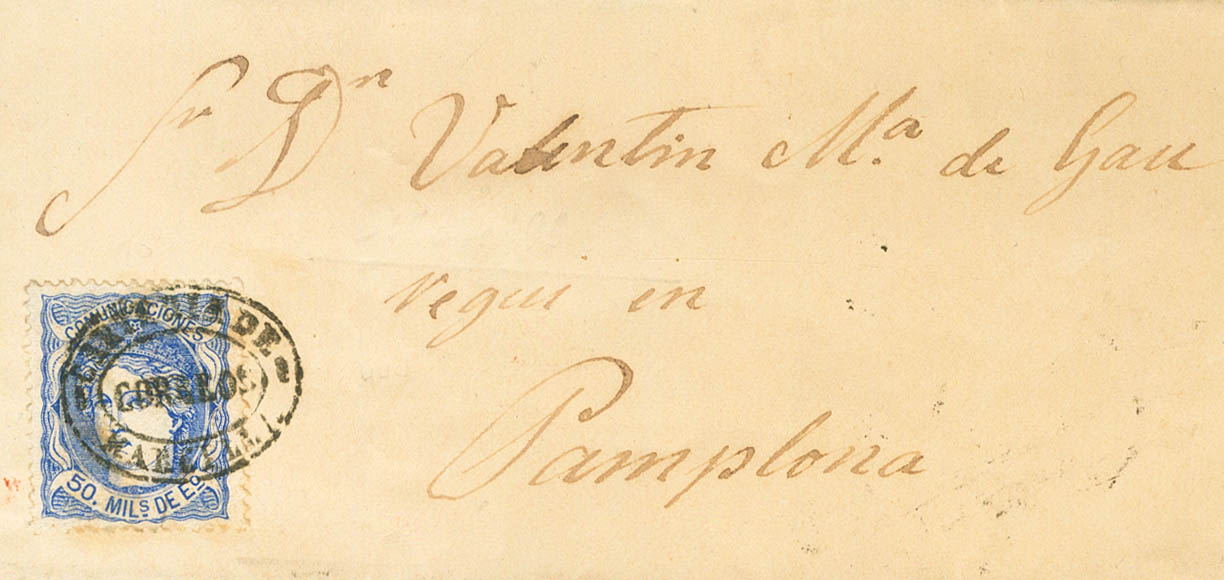 Sr Dn Valentin Ma. de Gau
vegui en
Pamplona
COMUNICACIONES
50. MILS DE EO
DE
CORREOS